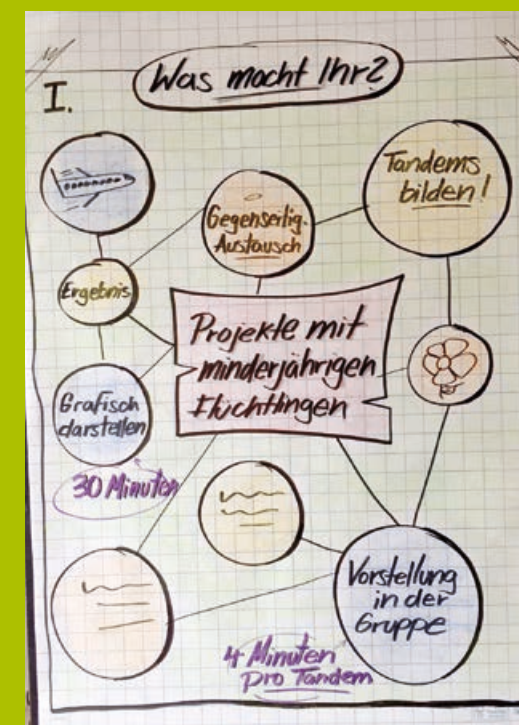 Was macht Ihr?
I.
Tandems
bilden!
Gegenseitig.
Austausch
Ergebnis
Projekte mit
minderjährigen
Flüchtlingen
Grafisch
darstellen
30 Minuten
Vorstellung
in der
Gruppe
4 Minuten
pro Tandem